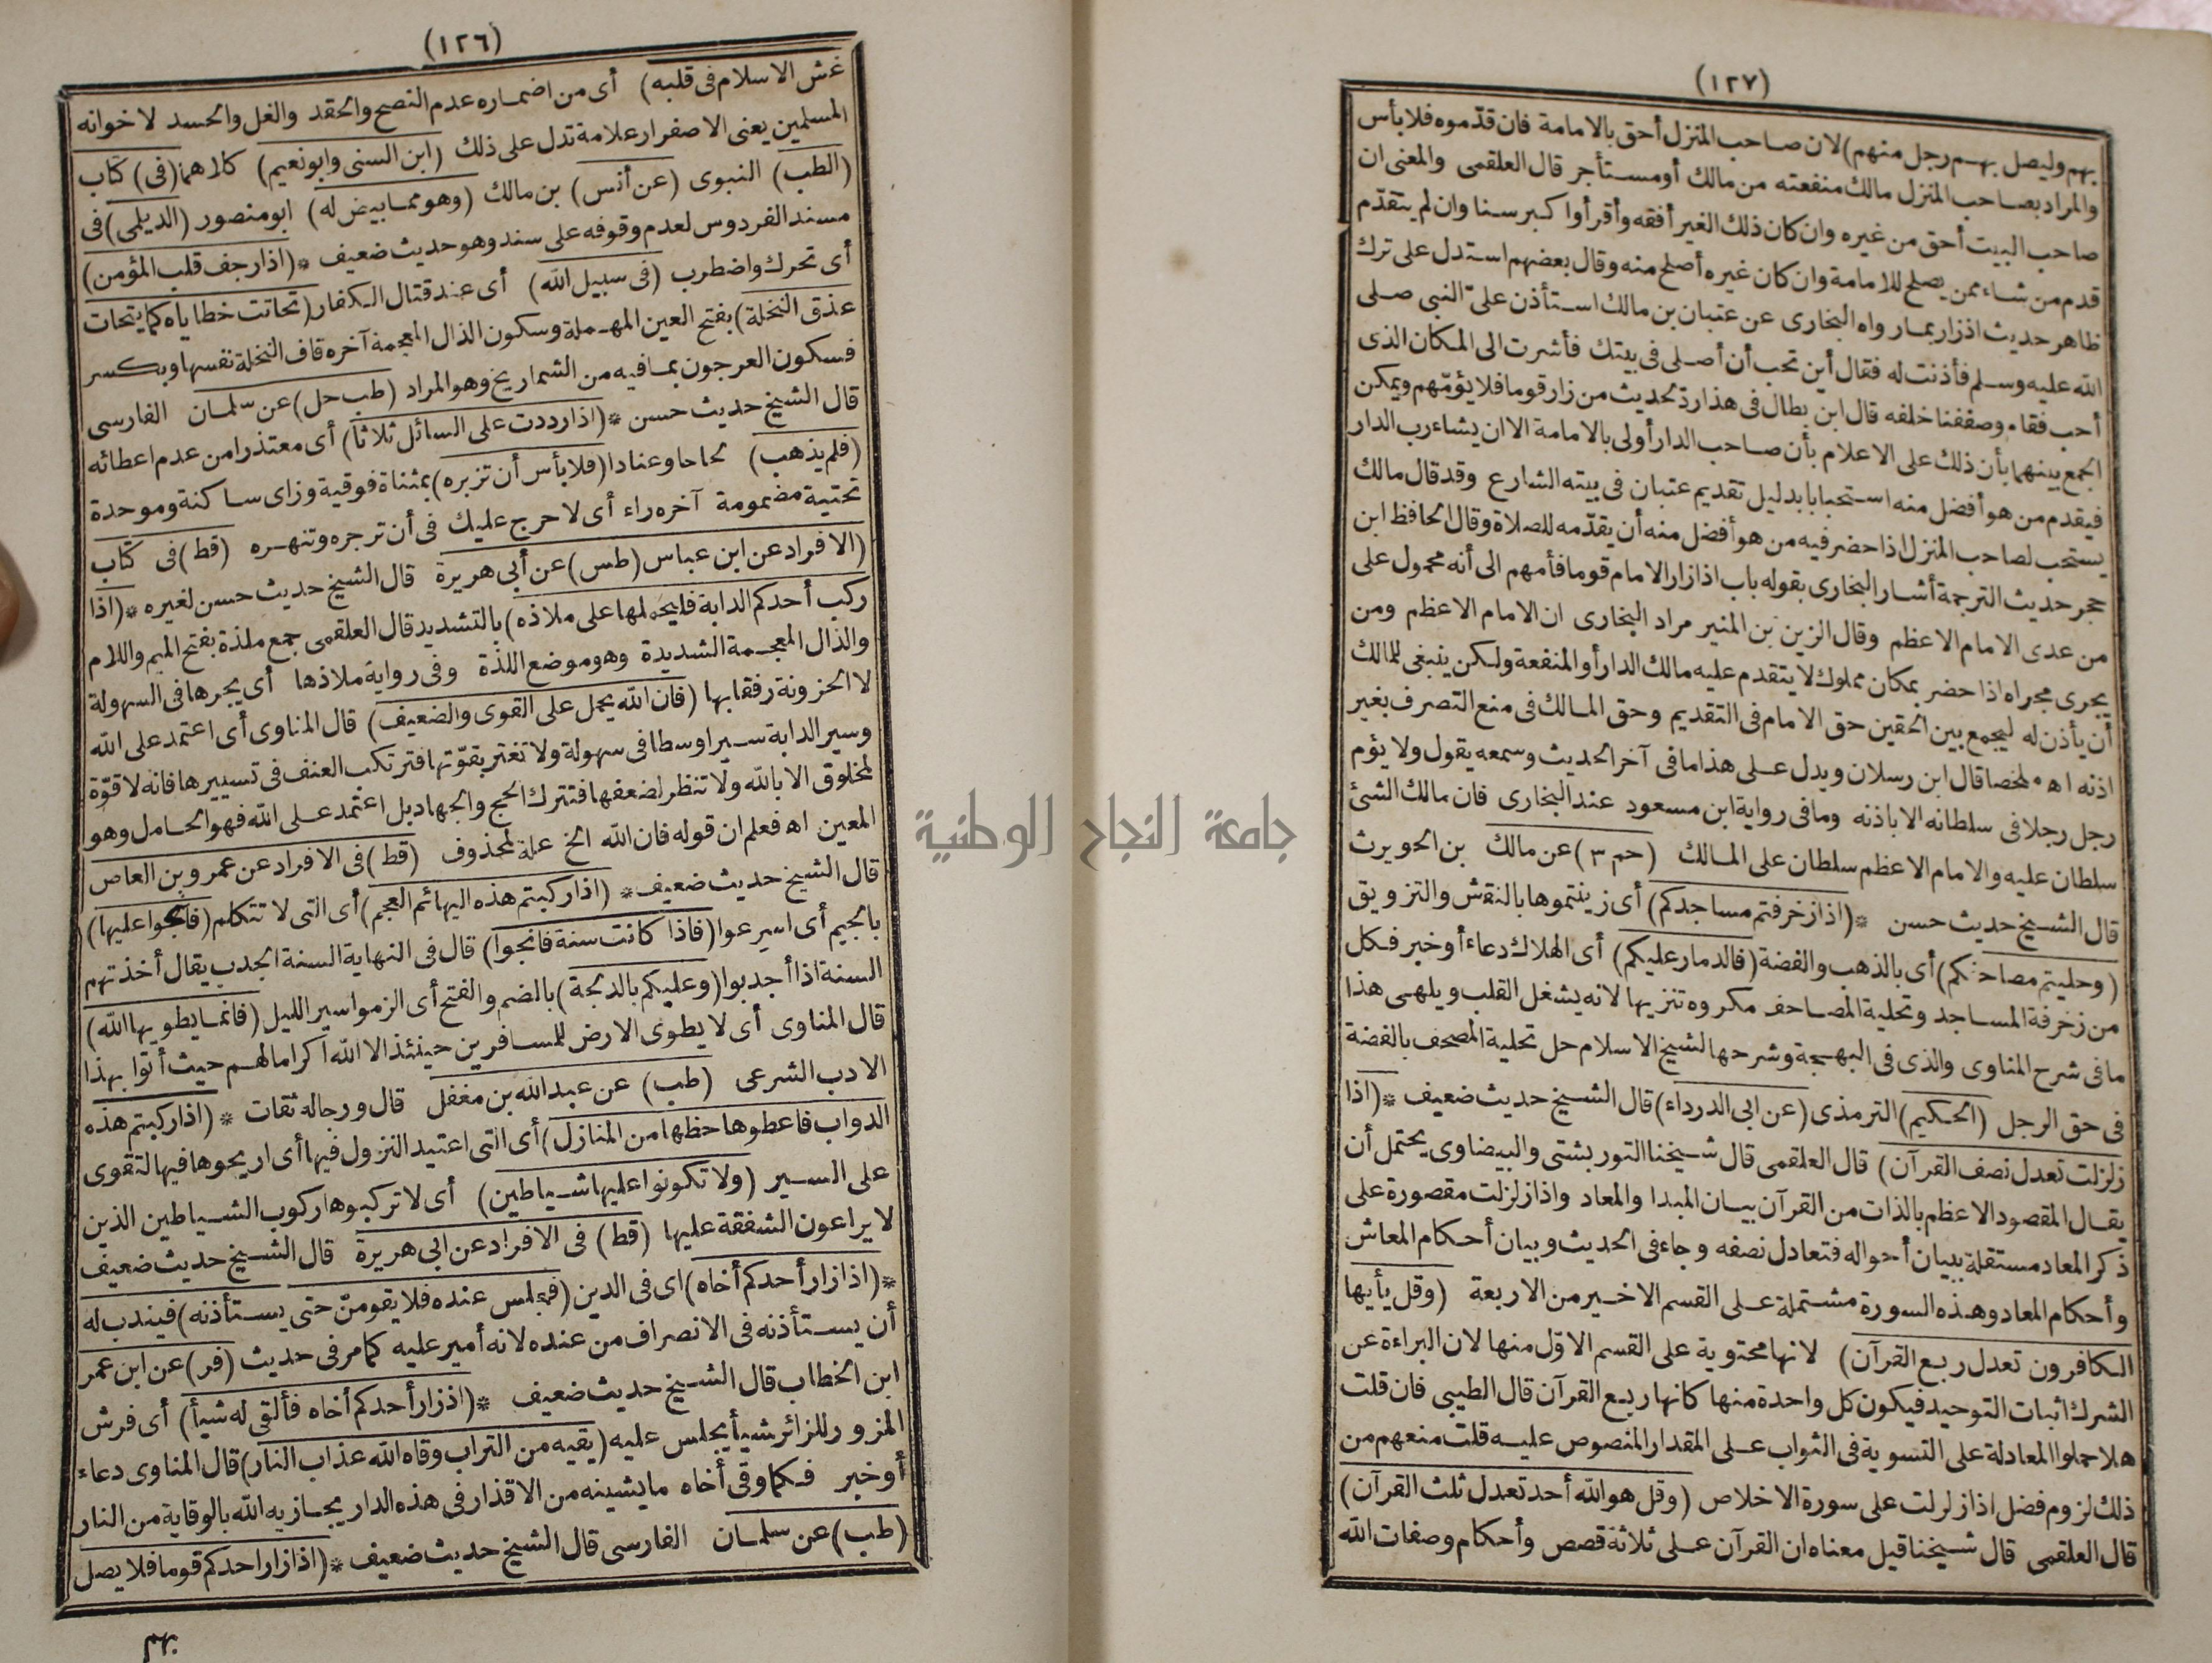 (١٢٦)
غش الاسلام فى قلبه) أى من اضماره عدم النصح والحقد والغل والحسد لاخوانه
المسلمين يعنى الاصفرار علامة تدل على ذلك (ابن السنى وابو نعيم) كلاهما (فى) كتاب
(الطب) النبوى (عن أنس) بن مالك (وهو مما بيض له) ابو منصور (الديلمى) فى
مسند الفردوس لعدم وقوفه على سند وهو حديث ضعيف * (اذا رجف قلب المؤمن)
أى تحرك واضطرب (فى سبيل الله) أى عند قتال الكفار (تحاتت خطاياه كما يتحات
عذق النخلة) بفتح العين المهملة وسكون الذال المعجمة آخره قاف النخلة نفسها وبكسر
فسكون العرجون بما فيه من الشماريخ وهو المراد (طب حل) عن سلمان الفارسى
قال الشيخ حديث حسن * (اذا رددت على السائل ثلاثا) أى معتذرا من عدم اعطائه
(فلم يذهب) لحاحا وعنادا (فلا بأس أن تزبره) بمثناة فوقية وزاى ساكنة وموحدة
تحتية مضمومة آخره راء أى لا حرج عليك فى أن تزجره وتنهره (قط) فى كتاب
(الافراد عن ابن عباس (طس) عن أبى هريرة قال الشيخ حديث حسن لغيره * (اذا
ركب أحدكم الدابة فليحملها على ملاذه) بالتشديد قال العلقمى جمع ملذة بفتح الميم واللام
والذال المعجمة الشديدة وهو موضع اللذة وفى رواية ملاذها أى يجرها فى السهولة
لا الحزونة رفقا بها (فان الله يحمل على القوى والضعيف) قال المناوى أى اعتمد على الله
وسير الدابة سيرا وسطا فى سهولة ولا تغتر بقوّتها فترتكب العنف فى تسييرها فانه لا قوّة
لمخلوق الا بالله ولا تنظر لضعفها فتترك الحج والجهاد بل اعتمد على الله فهو الحامل وهو
المعين اه فعلم ان قوله فان الله الخ علة لمحذوف (قط) فى الافراد عن عمرو بن العاص
قال الشيخ حديث ضعيف * (اذا ركبتم هذه البهائم العجم) أى التى لا تتكلم (فانجوا عليها)
بالجيم أى اسرعوا (فاذا كانت سنة فانجوا) قال فى النهاية السنة الجدب يقال أخذتهم
السنة اذا أجدبوا (وعليكم بالدلجة) بالضم والفتح أى الزموا سير الليل (فانما يطويها الله)
قال المناوى أى لا يطوى الارض للمسافرين حينئذ الا الله اكراما لهم حيث أتوا بهذا
الادب الشرعى (طب) عن عبد الله بن مغفل قال ورجاله ثقات * (اذا ركبتم هذه
الدواب فاعطوها حظها من المنازل) أى التى اعتيد النزول فيها أى اريحوها فيها لتقوى
على السير (ولا تكونوا عليها شياطين) أى لا تركبوها ركوب الشياطين الذين
لا يراعون الشفقة عليها (قط) فى الافراد عن ابى هريرة قال الشيخ حديث ضعيف
* (اذا زار أحدكم أخاه) اى فى الدين (فجلس عنده فلا يقومنّ حتى يستأذنه) فيندب له
أن يستأذنه فى الانصراف من عنده لانه أمير عليه كما مر فى حديث (فر) عن ابن عمر
ابن الخطاب قال الشيخ حديث ضعيف * (اذا زار أحدكم أخاه فألقى له شيأ) أى فرش
المزور للزائر شيأ يجلس عليه (يقيه من التراب وقاه الله عذاب النار) قال المناوى دعاء
أو خبر فكما وقى أخاه ما يشينه من الاقذار فى هذه الدار يجازيه الله بالوقاية من النار
(طب) عن سلمان الفارسى قال الشيخ حديث ضعيف * (اذا زار احدكم قوما فلا يصل
بهم
(١٢٧)
بهم وليصل بهم رجل منهم) لان صاحب المنزل أحق بالامامة فان قدّموه فلا بأس
والمراد بصاحب المنزل مالك منفعته من مالك أو مستأجر قال العلقمى والمعنى ان
صاحب البيت أحق من غيره وان كان ذلك الغير أفقه وأقرأ واكبر سنا وان لم يتقدّم
قدم من شاء ممن يصلح للامامة وان كان غيره أصلح منه وقال بعضهم استدل على ترك
ظاهر حديث اذا زار بما رواه البخارى عن عتبان بن مالك استأذن علىّ النبى صلى
الله عليه وسلم فأذنت له فقال أين تحب أن أصلى فى بيتك فأشرت الى المكان الذى
أحب فقام وصففنا خلفه قال ابن بطال فى هذا ردّ لحديث من زار قوما فلا يؤمّهم ويمكن
الجمع بينهما بأن ذلك على الاعلام بأن صاحب الدار أولى بالامامة الا ان يشاء رب الدار
فيقدم من هو أفضل منه استحبابا بدليل تقديم عتبان فى بيته الشارع وقد قال مالك
يستحب لصاحب المنزل اذا حضر فيه من هو أفضل منه أن يقدّمه للصلاة وقال الحافظ ابن
حجر حديث الترجمة أشار البخارى بقوله باب اذا زار الامام قوما فأمهم الى أنه محمول على
من عدى الامام الاعظم وقال الزين بن المنير مراد البخارى ان الامام الاعظم ومن
يجرى مجراه اذا حضر بمكان مملوك لا يتقدم عليه مالك الدار أو المنفعة ولكن ينبغى للمالك
أن يأذن له ليجمع بين الحقين حق الامام فى التقديم وحق المالك فى منع التصرف بغير
اذنه اه ملخصا قال ابن رسلان ويدل على هذا ما فى آخر الحديث وسمعه يقول ولا يؤم
رجل رجلا فى سلطانه الا باذنه وما فى رواية ابن مسعود عند البخارى فان مالك الشئ
سلطان عليه والامام الاعظم سلطان على المالك (حم ٣) عن مالك بن الحويرث
قال الشيخ حديث حسن * (اذا زخرفتم مساجدكم) أى زينتموها بالنقش والتزويق
(وحليتم مصاحفكم) أى بالذهب والفضة (فالدمار عليكم) أى الهلاك دعاء أو خبر فكل
من زخرفة المساجد وتحلية المصاحف مكروه تنزيها لانه يشغل القلب ويلهى هذا
ما فى شرح المناوى والذى فى البهجة وشرحها لشيخ الاسلام حل تحلية المصحف بالفضة
فى حق الرجل (الحكيم) الترمذى (عن ابى الدرداء) قال الشيخ حديث ضعيف * (اذا
زلزلت تعدل نصف القرآن) قال العلقمى قال شيخنا التوربشتى والبيضاوى يحتمل أن
يقال المقصود الاعظم بالذات من القرآن بيان المبدا والمعاد واذا زلزلت مقصورة على
ذكر المعاد مستقلة ببيان أحواله فتعادل نصفه وجاء فى الحديث وبيان أحكام المعاش
وأحكام المعاد وهذه السورة مشتملة على القسم الاخير من الاربعة (وقل يأيها
الكافرون تعدل ربع القرآن) لانها محتوية على القسم الاوّل منها لان البراءة عن
الشرك اثبات التوحيد فيكون كل واحدة منها كانها ربع القرآن قال الطيبى فان قلت
هلا حملوا المعادلة على التسوية فى الثواب على المقدار المنصوص عليه قلت منعهم من
ذلك لزوم فضل اذا زلزلت على سورة الاخلاص (وقل هو الله أحد تعدل ثلث القرآن)
قال العلقمى قال شيخنا قيل معناه ان القرآن على ثلاثة قصص وأحكام وصفات الله
جامعة النجاح الوطنية